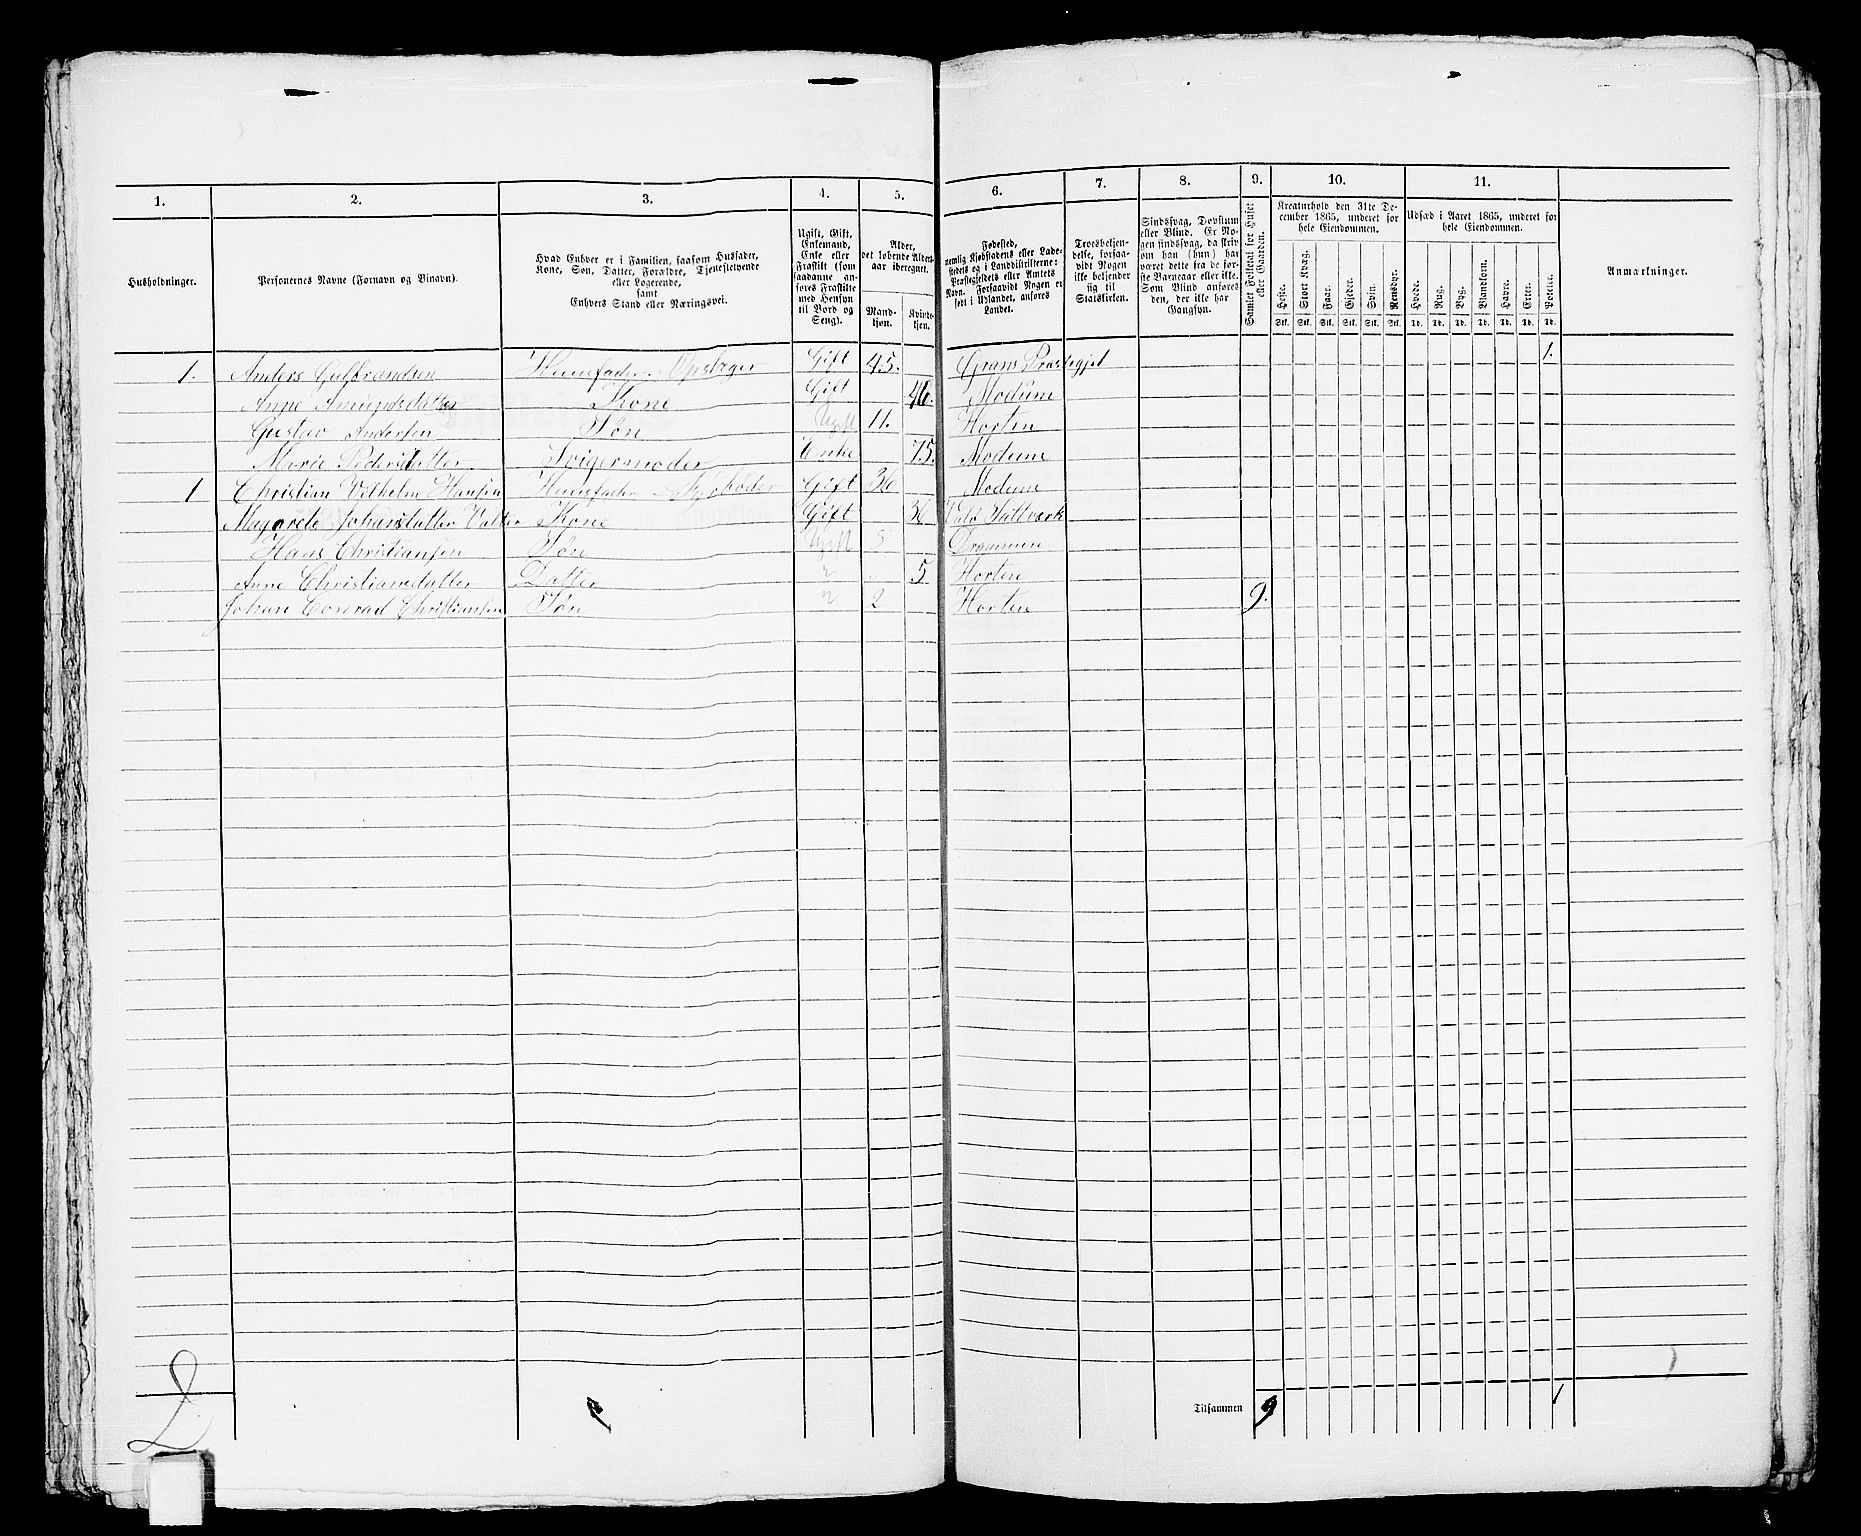 1. 2. 3. 4. 5. 6. 7. 8. 9. 10. 11.
Husholdninger.
Personernes Navne (Fornavn og Binavn).
Hvad Enhver er i Familien, saasom Husfader,
Kone, Søn, Datter, Forældre, Tjenestetyende
eller Logerende,
samt
Enhvers Stand eller Næringsvei.
Ugift, Gift,
Enkemand,
Enke eller
Fraskilt (som
saadanne an-
føres Fraskilte
med Hensyn
til Bord og
Seng).
Alder,
det løbende Alders-
aar iberegnet.
Mand-
kjøn.
Kvinde-
kjøn.
Fødested,
nemlig Kjøbstadens eller Lade-
stedets og i Landdistrikterne:
Præstegjeldets eller Amtets
Navn. Forsaavidt Nogen er
født i Udlandet, anføres
Landet.
Troesbekjen-
delse, forsaa-
vidt Nogen
ikke bekjender
sig til
Statskirken.
Sindssvag, Døvstum
eller Blind. Er No-
gen sindssvag, da skriv
om han (hun) har
været dette fra de før-
ste Barneaar eller ikke.
Som Blind anføres
den, der ikke har
Gangsyn.
Samlet Folketal for Huset
eller Gaarden.
Kreaturhold den 31te De-
cember 1865, underet for
hele Eiendommen.
Heste. Stort Kvæg. Faar. Gjeder. Svin. Rensdyr.
Stk. Stk. Stk. Stk. Stk. Stk.
Udsæd i Aaret 1865, underet for
hele Eiendommen.
Hvede. Rug. Byg. Blandkorn. Havre. Erter. Poteter.
Td. Td. Td. Td. Td. Td. Td.
Anmærkninger.
1. Anders Gulbrandsen Huusfader Opsyger Gift 45. Grans Præstegjel 1.
Anne Amundsdatter Kone Gift 46. Modum
Gustav Andersen Søn Ugift 11. Horten
Marie Pedersdatter Svigermoder Enke 75. Modum
1 Christian Vilhelm Hansen Huusfader Gift 36 Modum
Johansdatter Kone Gift 36
Hans Christiansen Søn Ugift 5 Drammen
Anne Christiansdatter Datter 5. Horten
Johan Conrad Christiansen Søn 2 Horten 9.
Tilsammen 9 1
2